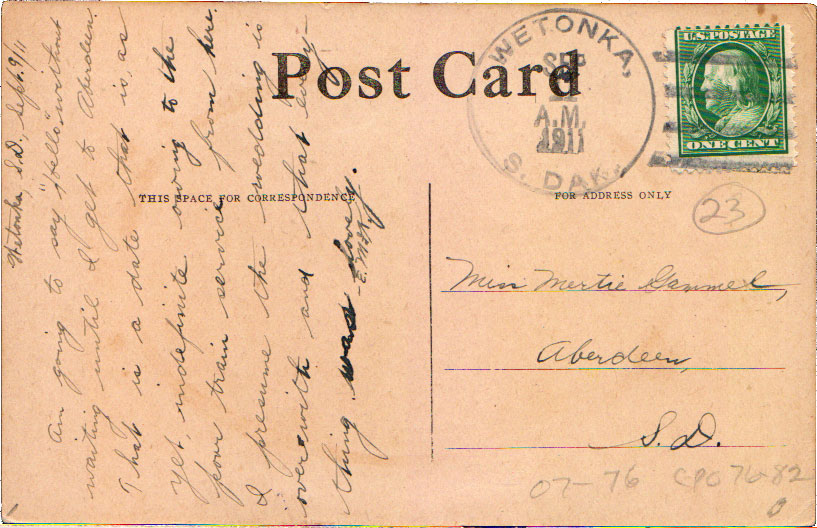 Post Card
THIS SPACE FOR CORRESPONDENCE
FOR ADDRESS ONLY
WETONKA,
SEP
A.M.
1911
S. DAK.
U.S. POSTAGE
ONE CENT
23
Wetonka, S.D., Sept. 9/11
Am going to say "hello" without
waiting until I get to Aberdeen.
That is a date that is, as
yet, indefinite owing to the
poor train service from here.
I presume the wedding is
over with and that every-
thing was lovely.
Miss Mertie Gammel,
Aberdeen,
S.D.
07-76 CP076-82